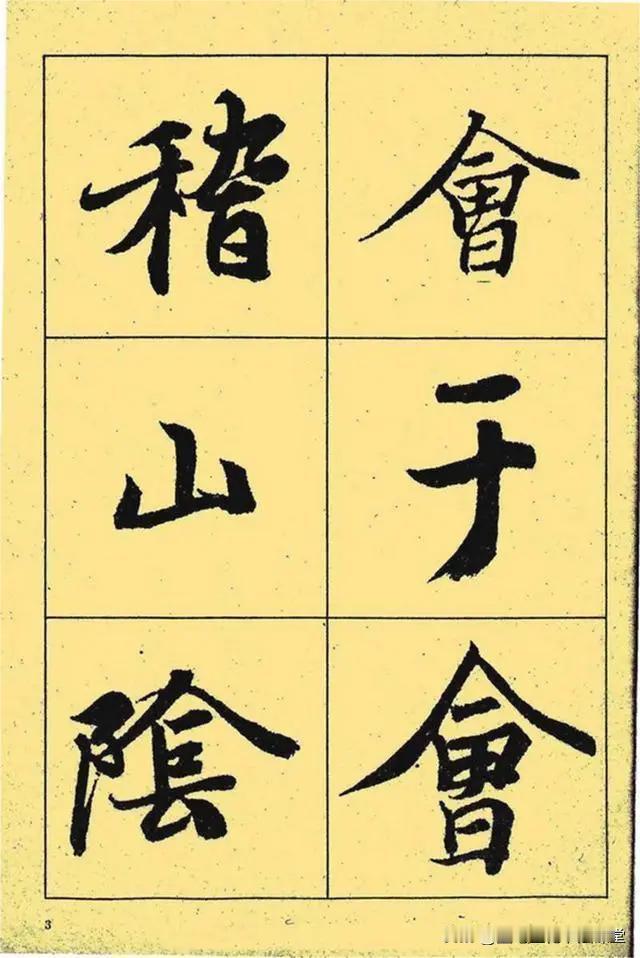 會于會
稽山陰
3
堂